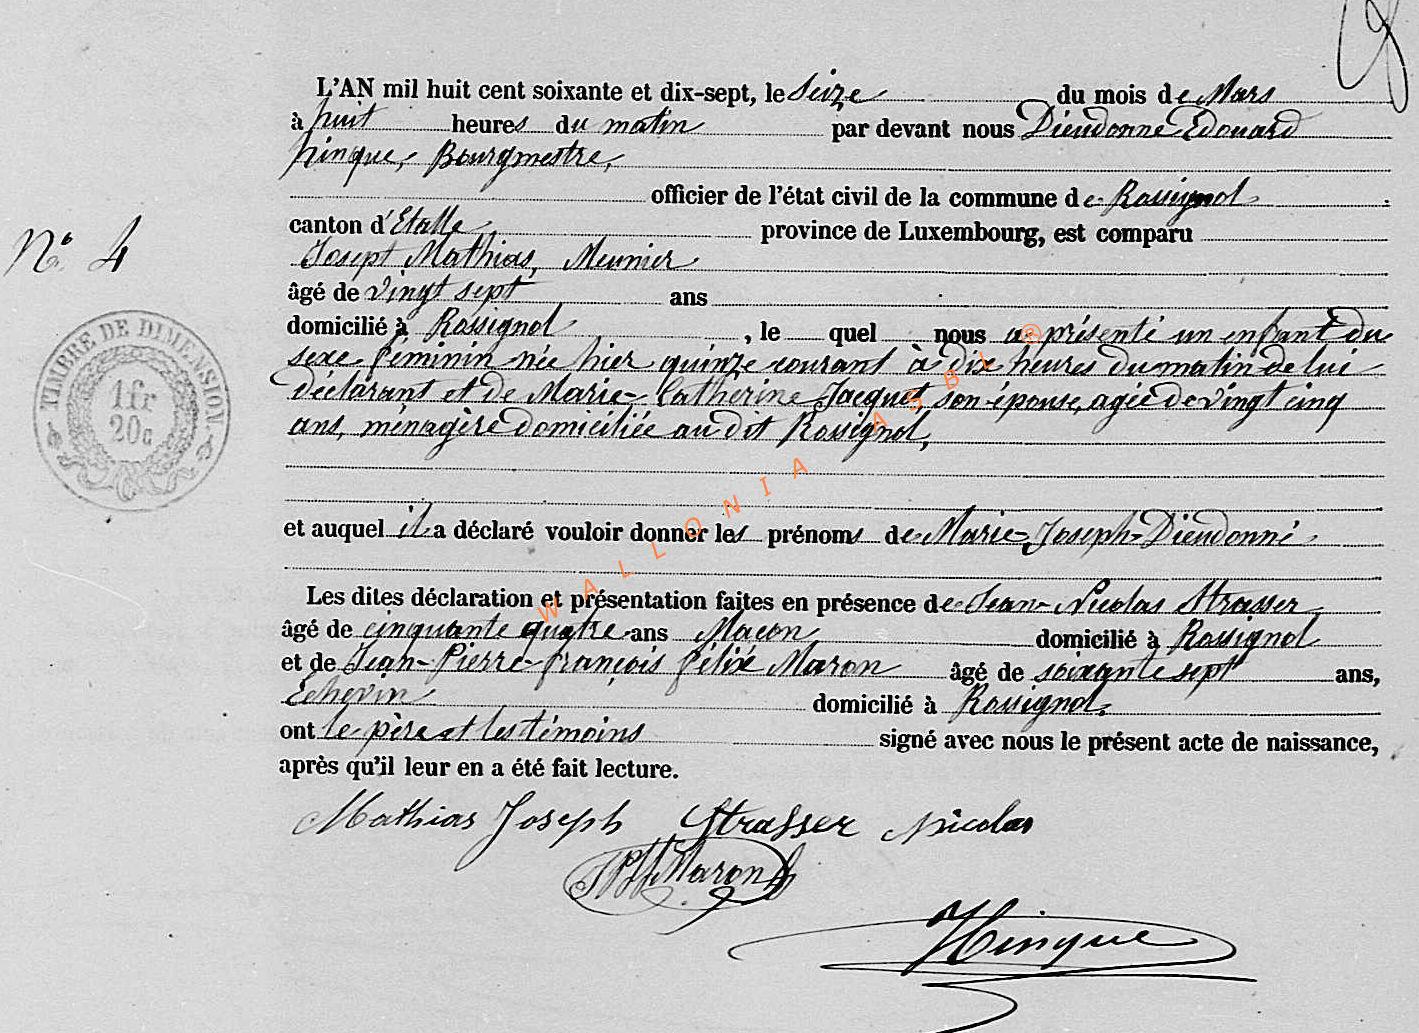 L'AN mil huit cent soixante et dix-sept, le Seize du mois de Mars
à huit heures du matin par devant nous Dieudonné Edouard
hinque, Bourgmestre,
officier de l'état civil de la commune de Rossignol
canton d'Etalle province de Luxembourg, est comparu
Josept Mathias, Meunier
âgé de vingt sept ans
domicilié à Rossignol, le quel nous a présenté un enfant du
sexe féminin née hier quinze courant à dix heures du matin de lui
déclarant et de Marie-Catherine Jacquet, son épouse, agée de vingt cinq
ans, ménagère domiciliée au dit Rossignol,
et auquel il a déclaré vouloir donner les prénoms de Marie-Joseph-Dieudonné
Les dites déclaration et présentation faites en présence de Jean-Nicolas Strasser
âgé de cinquante quatre ans Maçon domicilié à Rossignol
et de Jean-Pierre-françois félix Maron âgé de soixante sept ans,
Echevin domicilié à Rossignol.
ont le père et les témoins signé avec nous le présent acte de naissance,
après qu'il leur en a été fait lecture.
Mathias Joseph Strasser Nicolas
Maron
Hinque
N° 4
TIMBRE DE DIMENSION
1fr
20c
WALLONIA ASBL ®